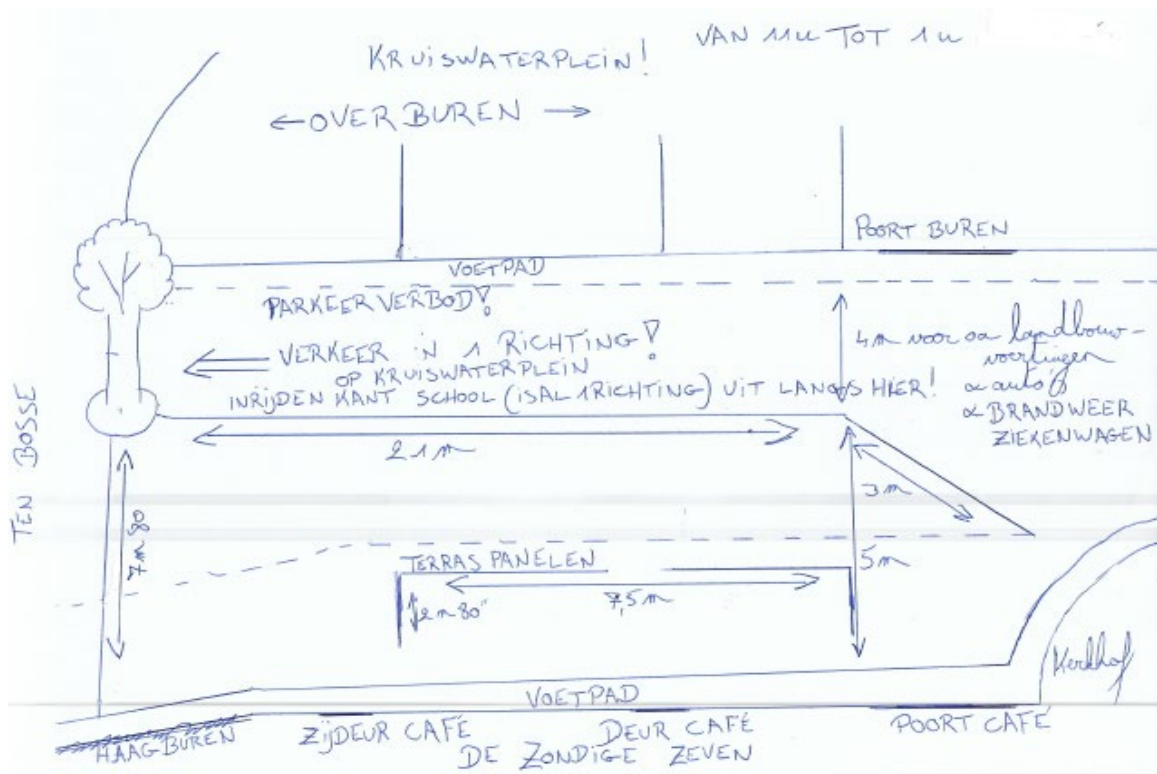 VAN 11u TOT 1u
KRUISWATERPLEIN!
← OVERBUREN →
POORT BUREN
VOETPAD
PARKEERVERBOD!
VERKEER IN 1 RICHTING!
OP KRUISWATERPLEIN
INRIJDEN KANT SCHOOL (IS AL 1RICHTING) UIT LANGS HIER!
4m voor oa landbouw-
voertuigen
& auto's
& BRANDWEER
ZIEKENWAGEN
21m
TEN BOSSE
7m80
3m
5m
TERRASPANELEN
7,5m
2m80"
Kerkhof
VOETPAD
HAAG BUREN
ZIJDEUR CAFÉ
DEUR CAFÉ
POORT CAFÉ
DE ZONDIGE ZEVEN